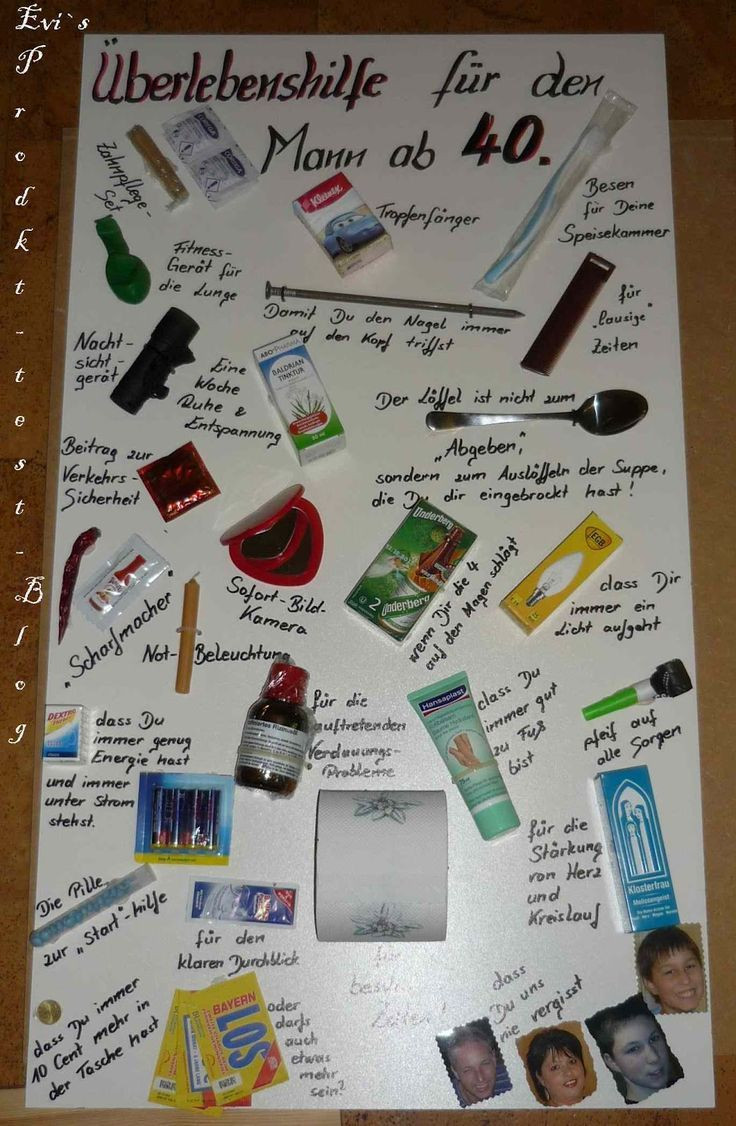 Evi`s
Prodkt-test-Blog
Überlebenshilfe für den
Mann ab 40.
Zahnpflege-
Set
Kleenex
Tropfenfänger
Besen
für Deine
Speisekammer
Fitness-
Gerät für
die Lunge
Damit Du den Nagel immer
auf den Kopf triffst
für
„lausige"
Zeiten
Nacht-
sicht-
gerät
Eine
Woche
Ruhe &
Entspannung
ABO PHARMA
BALDRIAN
TINKTUR
50 ml
Der Löffel ist nicht zum
„Abgeben",
sondern zum Auslöffeln der Suppe,
die Du dir eingebrockt hast!
Beitrag zur
Verkehrs-
Sicherheit
„Scharfmacher"
Sofort-Bild-
Kamera
Underberg
2 Underberg
wenn Dir die 4
auf den Magen schlägt
EGB
dass Dir
immer ein
Licht aufgeht
Not-Beleuchtung
DEXTRO
dass Du
immer genug
Energie hast
und immer
unter Strom
stehst.
Rizinusöl
für die
auftretenden
Verdauungs-
Probleme
Hansaplast
dass Du
immer gut
zu Fuß
bist
pfeif auf
alle Sorgen
für die
Stärkung
von Herz
und
Kreislauf
Klosterfrau
Melissengeist
Die Pille
zur „Start"-hilfe
für den
klaren Durchblick
für
Zeiten!
dass Du immer
10 Cent mehr in
der Tasche hast
BAYERN
LOS
oder
darfs
auch
etwas
mehr
sein?
dass
Du uns
nie vergisst